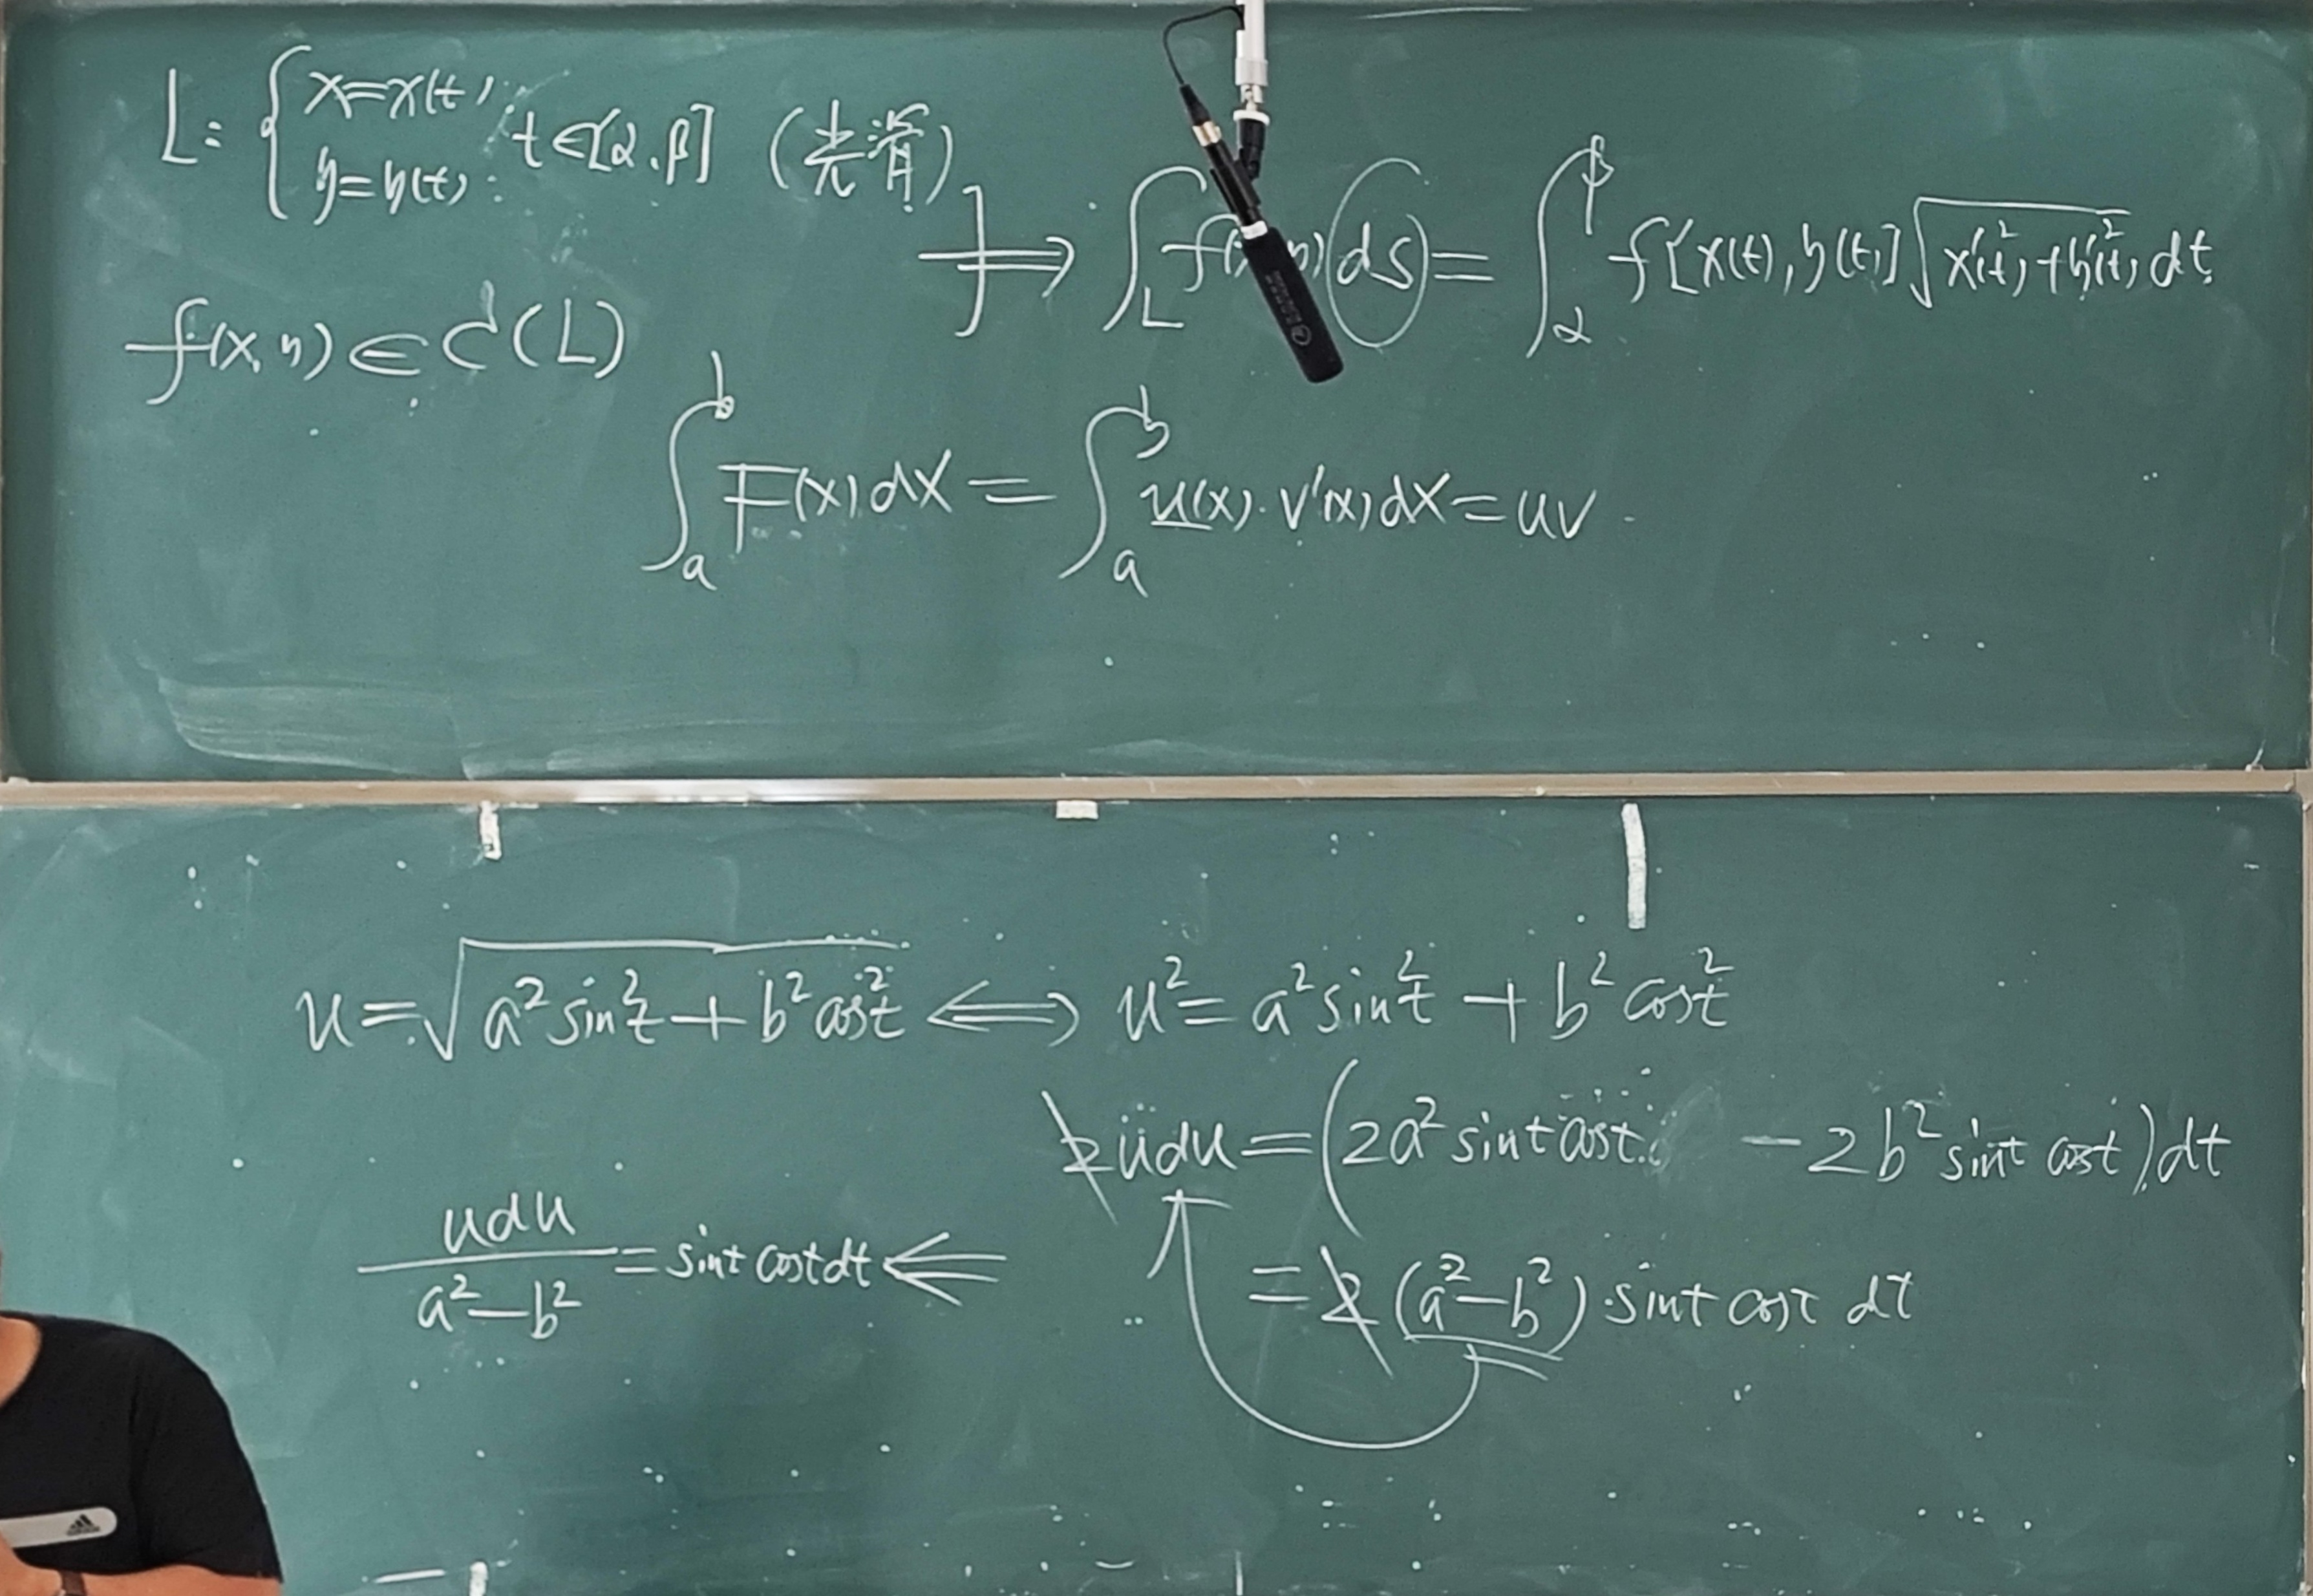 L: { x=x(t), y=y(t), t∈[α,β] (光滑)
f(x,y)∈C(L)
⇒ ∫_L f(x,y)ds = ∫_α^β f[x(t),y(t)]√(x'²(t)+y'²(t)) dt
∫_a^b F(x)dx = ∫_a^b u(x)·v'(x)dx = uv
u=√(a²sin²t+b²cos²t) ⇔ u²=a²sin²t+b²cos²t
2udu=(2a²sint cost -2b²sint cost)dt
=2(a²-b²)·sint cost dt
udu/(a²-b²) = sint cost dt ⇐
adidas